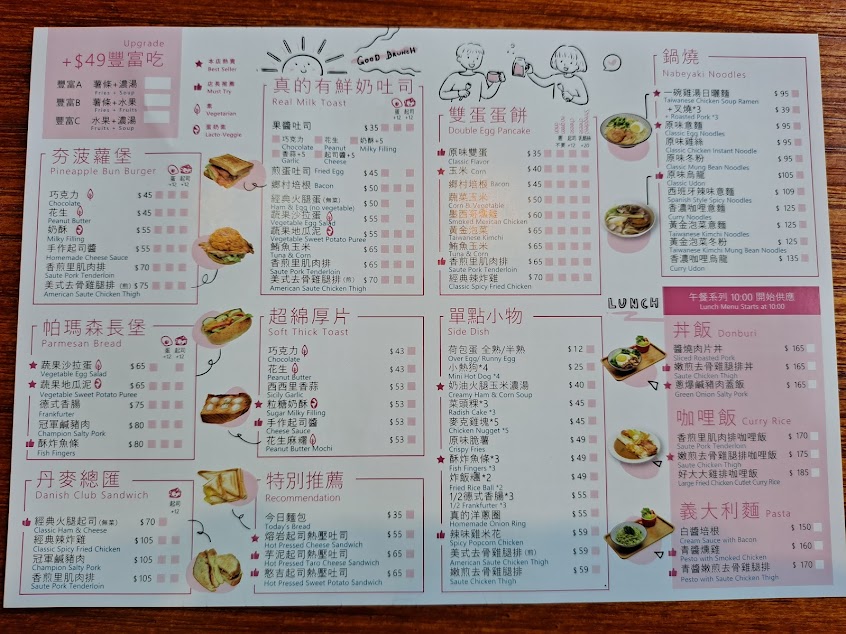 Upgrade
+$49豐富吃
豐富A 薯條+濃湯
Fries + Soup
豐富B 薯條+水果
Fries + Fruits
豐富C 水果+濃湯
Fruits + Soup
本店熱賣
Best Seller
店長推薦
Must Try
素
Vegetarian
蛋奶素
Lacto-Veggie
GOOD BRUNCH
夯菠蘿堡
Pineapple Bun Burger
蛋 起司
+12 +12
巧克力 $45
Chocolate
花生 $45
Peanut Butter
奶酥 $55
Milky Filling
手作起司醬 $55
Homemade Cheese Sauce
香煎里肌肉排 $70
Saute Pork Tenderloin
美式去骨雞腿排 (煎) $75
American Saute Chicken Thigh
帕瑪森長堡
Parmesan Bread
蛋 起司
+12 +12
蔬果沙拉蛋 $65
Vegetable Egg Salad
蔬果地瓜泥 $65
Vegetable Sweet Potato Puree
德式香腸 $75
Frankfurter
冠軍鹹豬肉 $80
Champion Salty Pork
酥炸魚條 $80
Fish Fingers
丹麥總匯
Danish Club Sandwich
起司
+12
經典火腿起司 (無菜) $70
Classic Ham & Cheese
經典辣炸雞 $105
Classic Spicy Fried Chicken
冠軍鹹豬肉 $105
Champion Salty Pork
香煎里肌肉排 $105
Saute Pork Tenderloin
真的有鮮奶吐司
Real Milk Toast
蛋 起司
+12 +12
果醬吐司 $35
巧克力 花生 奶酥+5
Chocolate Peanut Milky Filling
香蒜+5 起司醬+5
Garlic Cheese
煎蛋吐司 Fried Egg $45
鄉村培根 Bacon $50
經典火腿蛋 (無菜) $50
Ham & Egg (no vegetable)
蔬果沙拉蛋 $55
Vegetable Egg Salad
蔬果地瓜泥 $55
Vegetable Sweet Potato Puree
鮪魚玉米 $65
Tuna & Corn
香煎里肌肉排 $65
Saute Pork Tenderloin
美式去骨雞腿排 (煎) $70
American Saute Chicken Thigh
超綿厚片
Soft Thick Toast
巧克力 $43
Chocolate
花生 $43
Peanut Butter
西西里香蒜 $43
Sicily Garlic
粒糖奶酥 $53
Sugar Milky Filling
手作起司醬 $53
Cheese Sauce
花生麻糬 $53
Peanut Butter Mochi
特別推薦
Recommendation
今日麵包 $35
Today's Bread
熔岩起司熱壓吐司 $55
Hot Pressed Cheese Sandwich
芋泥起司熱壓吐司 $65
Hot Pressed Taro Cheese Sandwich
憨吉起司熱壓吐司 $65
Hot Pressed Sweet Potato Sandwich
雙蛋蛋餅
Double Egg Pancake
原味雙蛋 $35
Classic Flavor
玉米 Corn $45
鄉村培根 Bacon $45
蔬菜玉米 $50
Corn & Vegetable
墨西哥燻雞 $60
Smoked Mexican Chicken
黃金泡菜 $65
Taiwanese Kimchi
鮪魚玉米 $65
Tuna & Corn
香煎里肌肉排 $65
Saute Pork Tenderloin
經典辣炸雞 $70
Classic Spicy Fried Chicken
單點小物
Side Dish
荷包蛋 全熟/半熟 $12
Over Egg/ Runny Egg
小熱狗*4 $25
Mini Hot Dog *4
奶油火腿玉米濃湯 $40
Creamy Ham & Corn Soup
菜頭粿*3 $45
Radish Cake *3
麥克雞塊*5 $45
Chicken Nugget *5
原味脆薯 $49
Crispy Fries
酥炸魚條*3 $49
Fish Fingers *3
炸飯糰*2 $49
Fried Rice Ball *2
1/2德式香腸*3 $55
1/2 Frankfurter *3
真的洋蔥圈 $55
Homemade Onion Ring
辣味雞米花 $59
Spicy Popcorn Chicken
美式去骨雞腿排 (煎) $59
American Saute Chicken Thigh
嫩煎去骨雞腿排 $59
Saute Chicken Thigh
鍋燒
Nabeyaki Noodles
一碗雞湯日曬麵 $95
Taiwanese Chicken Soup Ramen
+叉燒*3 $39
+ Roasted Pork *3
原味意麵 $95
Classic Egg Noodles
原味雞絲 $95
Classic Chicken Instant Noodle
原味冬粉 $95
Classic Mung Bean Noodles
原味烏龍 $105
Classic Udon
西班牙辣味意麵 $109
Spanish Style Spicy Noodles
香濃咖哩意麵 $125
Curry Noodles
黃金泡菜意麵 $125
Taiwanese Kimchi Noodles
黃金泡菜冬粉 $125
Taiwanese Kimchi Mung Bean Noodles
香濃咖哩烏龍 $135
Curry Udon
LUNCH
午餐系列 10:00 開始供應
Lunch Menu Starts at 10:00
丼飯 Donburi
醬燒肉片丼 $165
Sliced Roasted Pork
嫩煎去骨雞腿排丼 $165
Saute Chicken Thigh
蔥爆鹹豬肉蓋飯 $165
Green Onion Salty Pork
咖哩飯 Curry Rice
香煎里肌肉排咖哩飯 $170
Saute Pork Tenderloin
嫩煎去骨雞腿排咖哩飯 $175
Saute Chicken Thigh
好大大雞排咖哩飯 $185
Large Fried Chicken Cutlet Curry Rice
義大利麵 Pasta
白醬培根 $150
Cream Sauce with Bacon
青醬燻雞 $160
Pesto with Smoked Chicken
青醬嫩煎去骨雞腿排 $170
Pesto with Saute Chicken Thigh